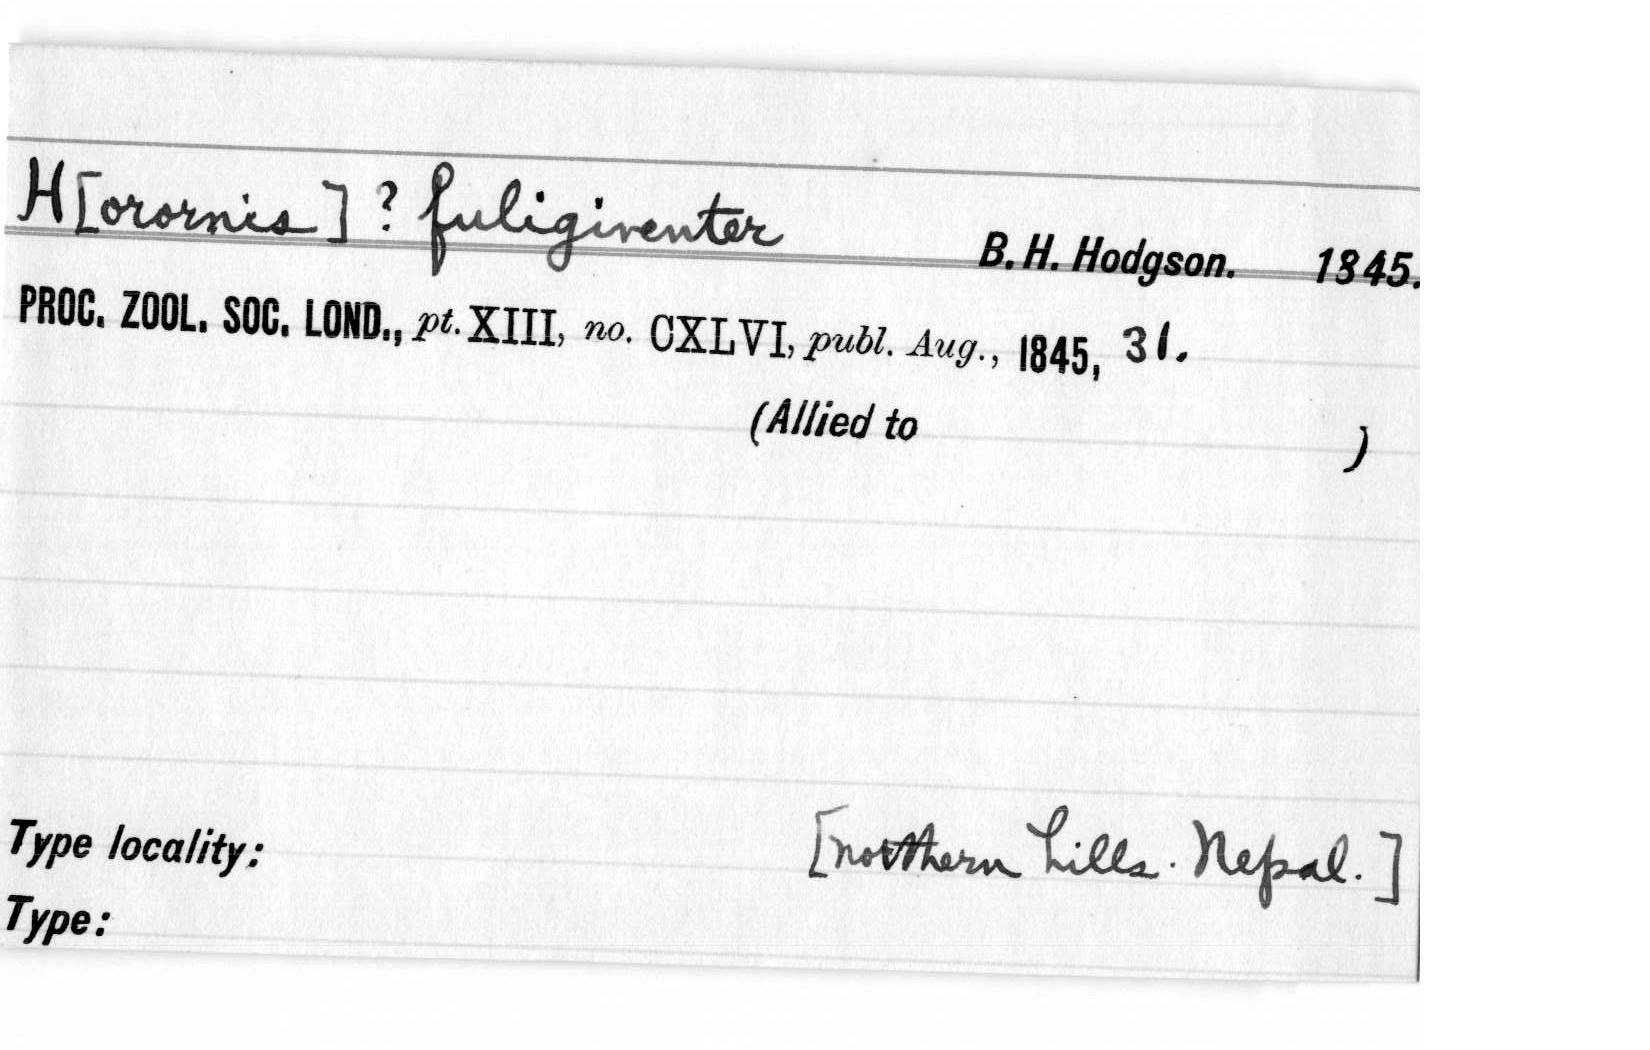 H[orornis] ? fuligiventer B. H. Hodgson. 1845.
PROC. ZOOL. SOC. LOND., pt. XIII, no. CXLVI, publ. Aug., 1845, 31.
(Allied to )
Type locality: [northern hills. Nepal.]
Type: